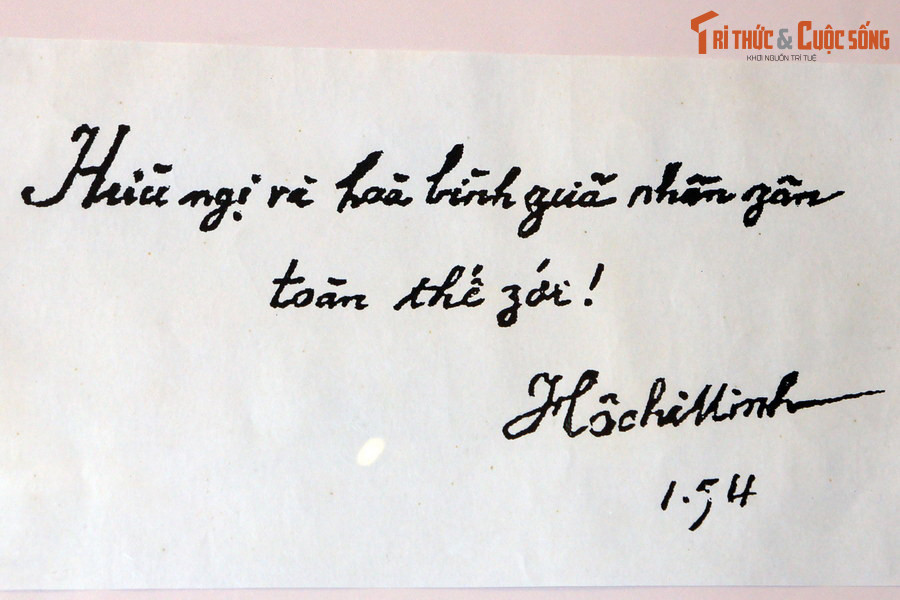 TRI THỨC & CUỘC SỐNG
KHƠI NGUỒN TRI TUỆ
Hữu ngị và hoà bình zuữ nhân zân
toàn thế zới!
Hồ chi Minh
1.54